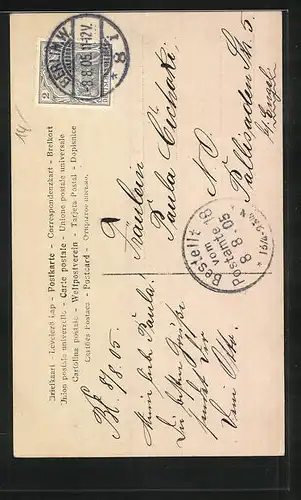 14/
2
BERLIN W
-8.8.05.11-12V.
* 8
Briefkaart - Levelező Lap - Postkarte - Correspondenzkart - Brefkort
Union postale universelle - Carte postale - Unione postale universale
Cartolina postale - Weltpostverein - Tarjeta Postal - Dopisnice
Cartões Postaes - Postcard -
Fräulein
Paula
N. O.
Pallisaden Str. 5
b/ Engel
Bestellt
vom
Postamte 18
8 8 05
8/8. 05.
Mein lieb. Paula!
Die besten Grüße
sendet Dir
Dein Otto.